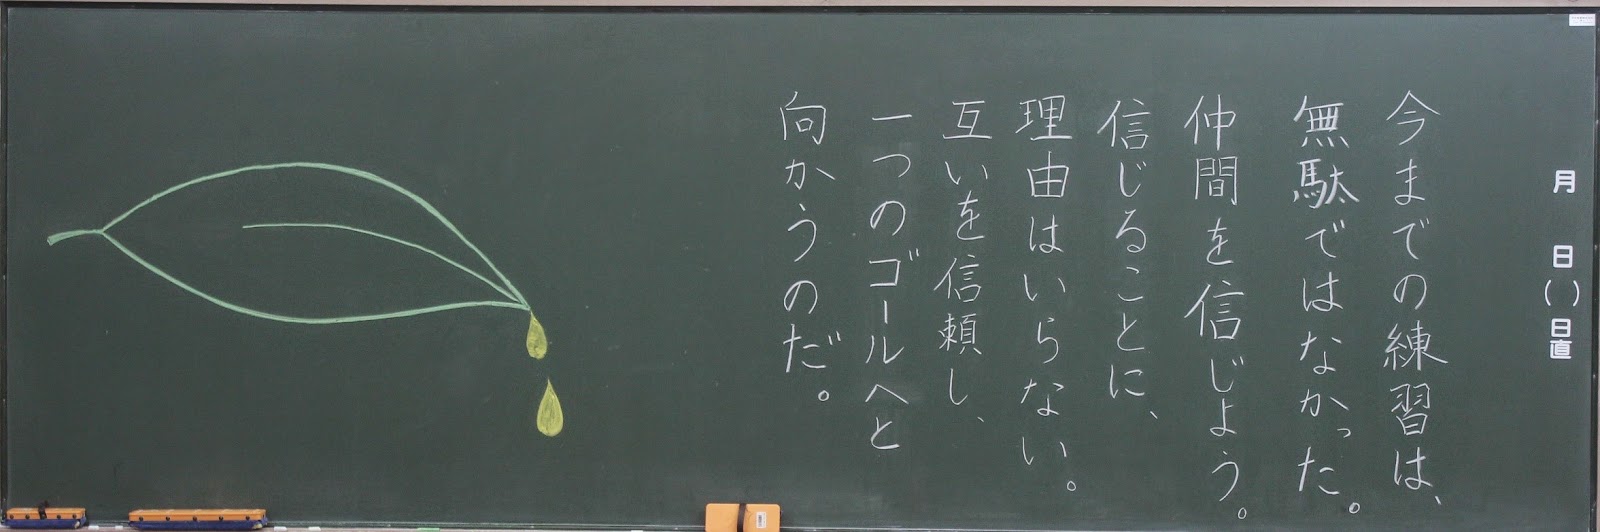 月　日（　）日直
今までの練習は、
無駄ではなかった。
仲間を信じよう。
信じることに、
理由はいらない。
互いを信頼し、
一つのゴールへと
向かうのだ。